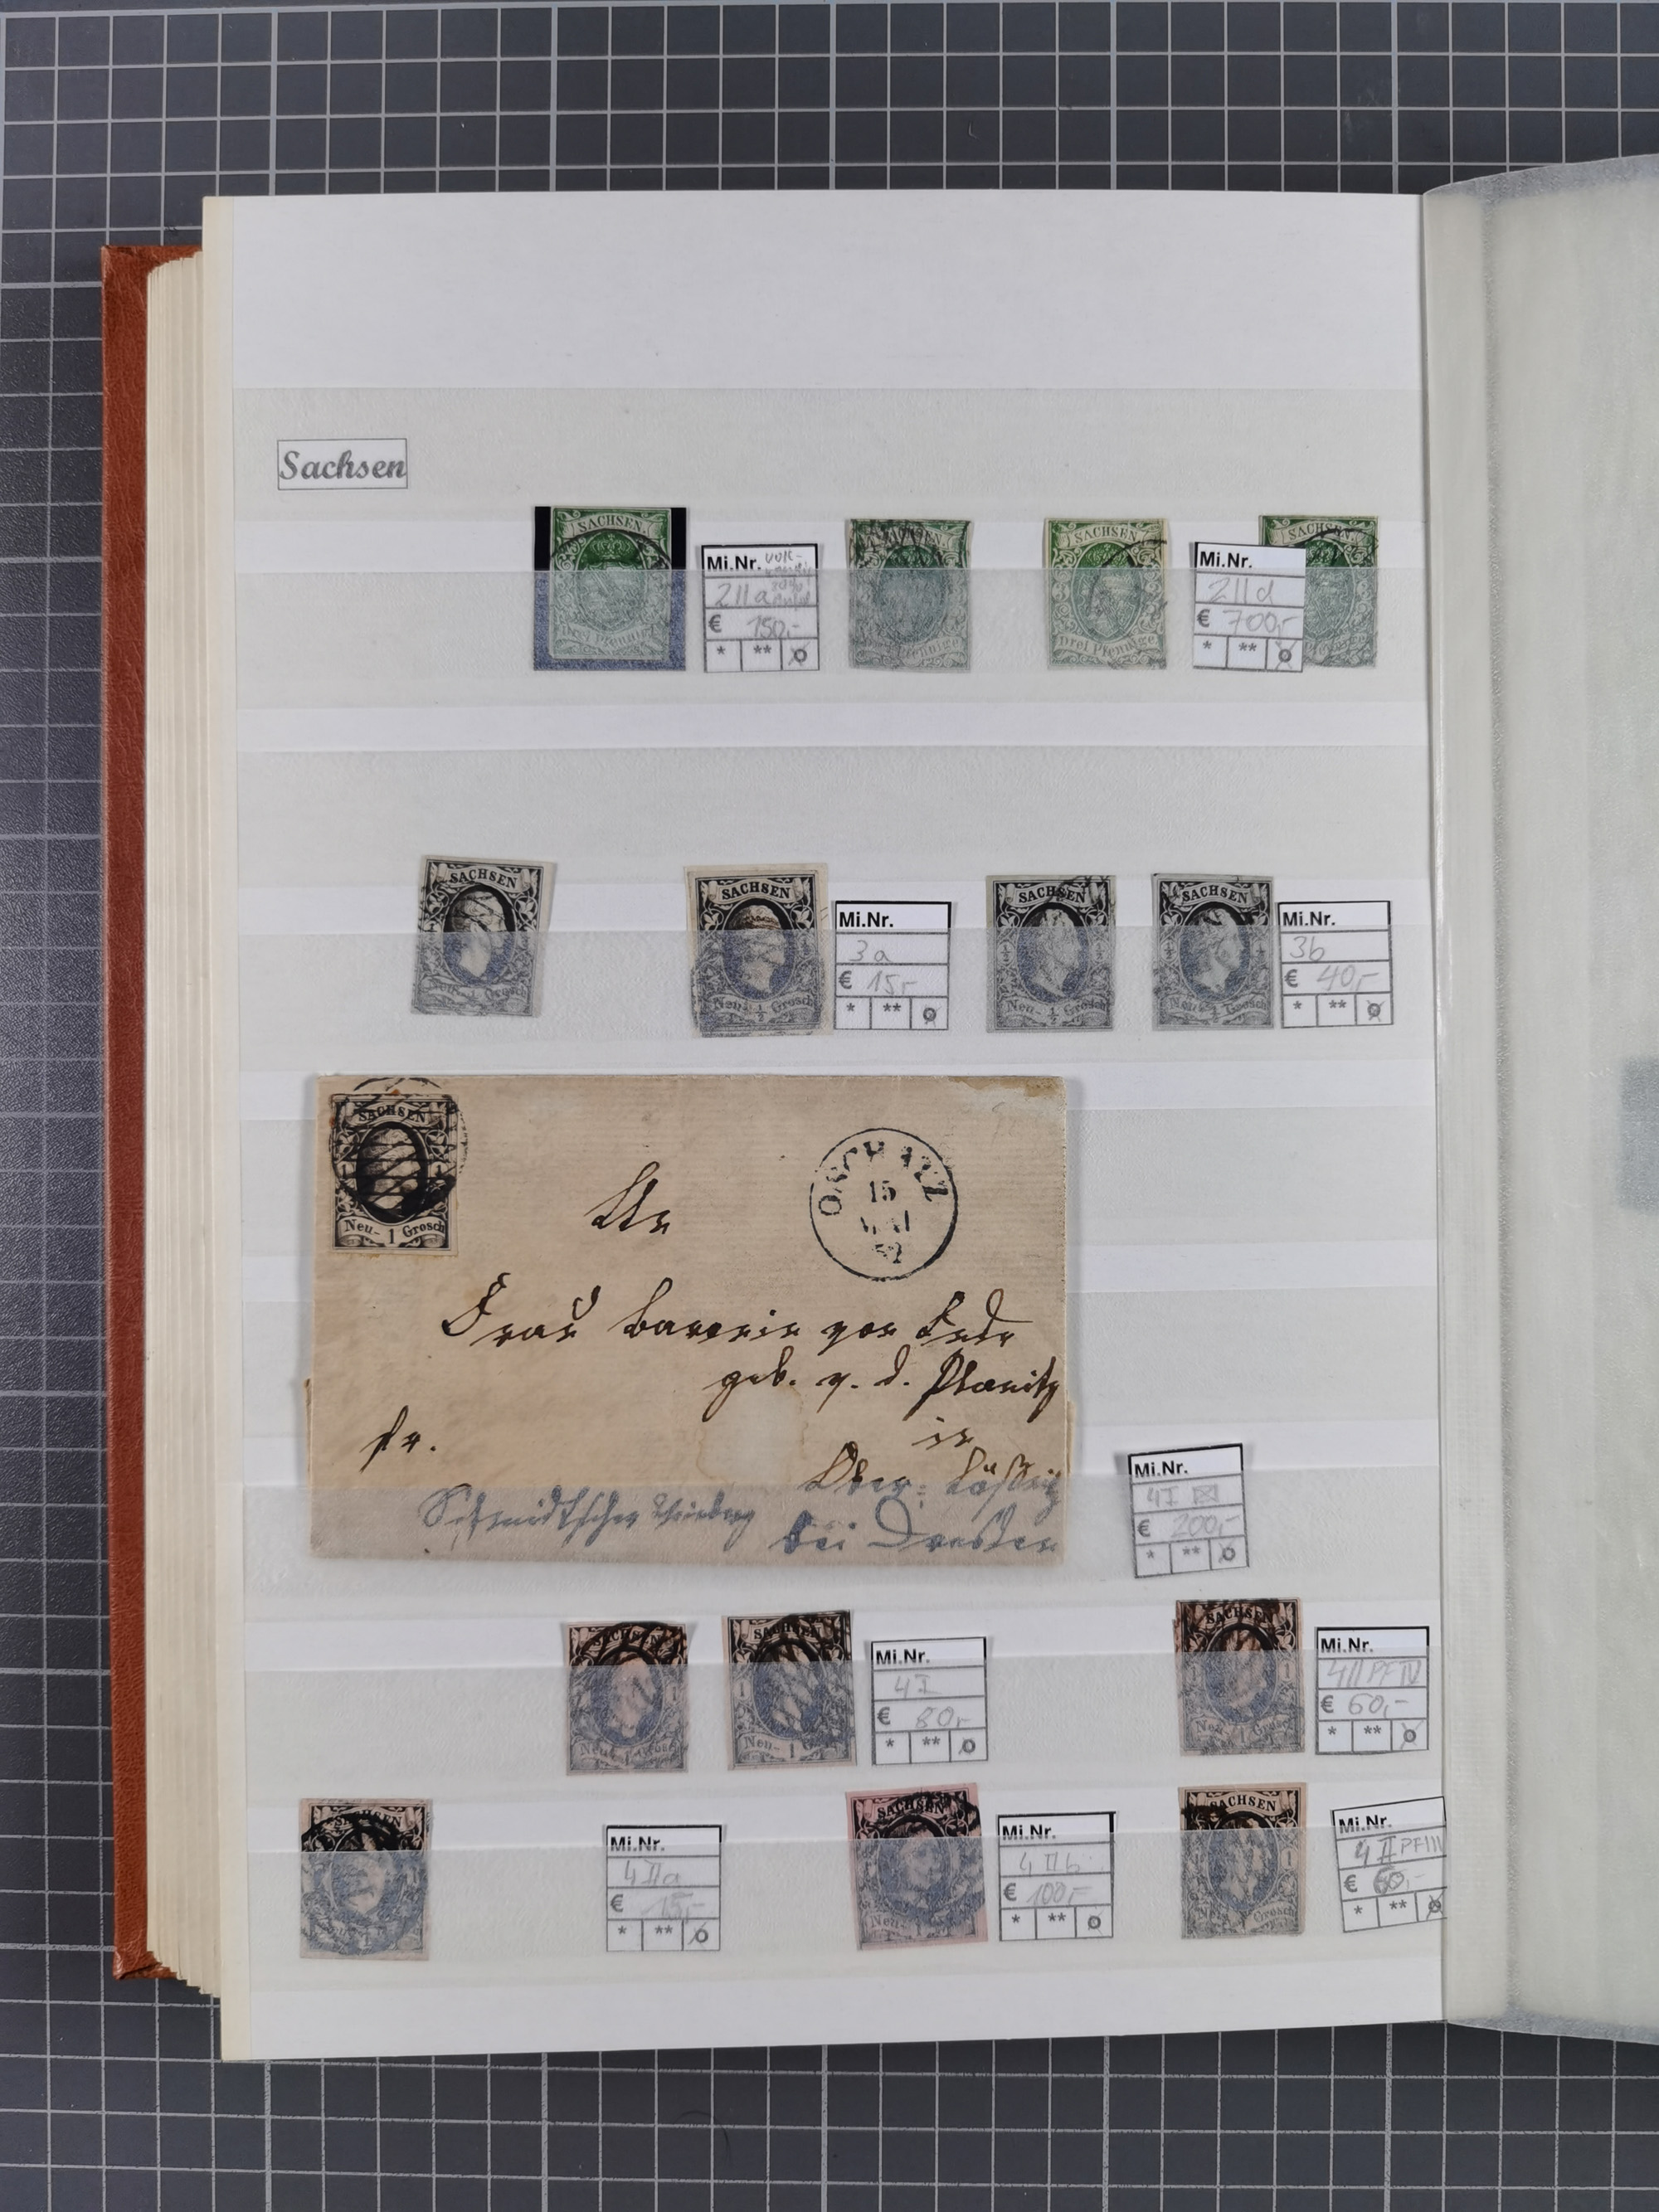 Sachsen
SACHSEN
Drei Pfennige
Mi.Nr.
2 II a
€ 150,-
* ** ⊙
Pfennige
SACHSEN
3
Drei Pfennige
Mi.Nr.
2 II d
€ 700,-
* ** ⊙
SACHSEN
SACHSEN
Grosch
SACHSEN
Neu- ½ Grosch
Mi.Nr.
3a
€ 15,-
* ** ⊙
SACHSEN
Neu- ½ Grosch
SACHSEN
Neu- ½ Grosch
Mi.Nr.
3b
€ 40,-
* ** ⊙
SACHSEN
Neu- 1 Grosch
OSCHATZ
15
MAI
52
An
Frau Baronin von Ende
geb. v. d. Planitz
fr.
in
Ober-Lößnitz
bei Dresden
Mi.Nr.
4 I ✉
€ 200,-
* ** ⊙
SACHSEN
Neu- 1 Grosch
SACHSEN
1
Neu- 1
Mi.Nr.
4 I
€ 80,-
* ** ⊙
SACHSEN
1
Neu- 1 Grosch
Mi.Nr.
4 II PF IV
€ 60,-
* ** ⊙
SACHSEN
Mi.Nr.
4 II a
€ 15,-
* ** ⊙
SACHSEN
Neu- 1
Mi.Nr.
4 II b
€ 100,-
* ** ⊙
SACHSEN
1
Neu- 1 Grosch
Mi.Nr.
4 II PF III
€ 60,-
* ** ⊙